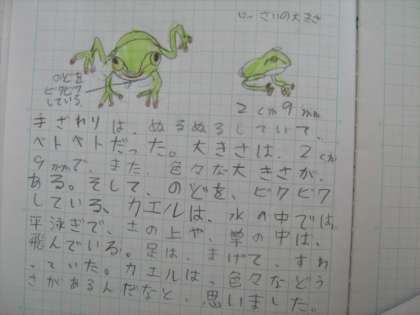 じっさいの大きさ
のどを
ピクピク
している
2cm9mm
手ざわりは、ぬるぬるしていて、
ベトベトだった。大きさは、2cm
9mmで、また、色々な大きさが、
ある。そして、のどを、ピクピク
している、カエルは、水の中では、
平泳ぎで、土の上や、草の中は、
飛んでいる。足は、まげて、すわ
っていた。カエルは、色々などう
さがあるんだなと、思いました。